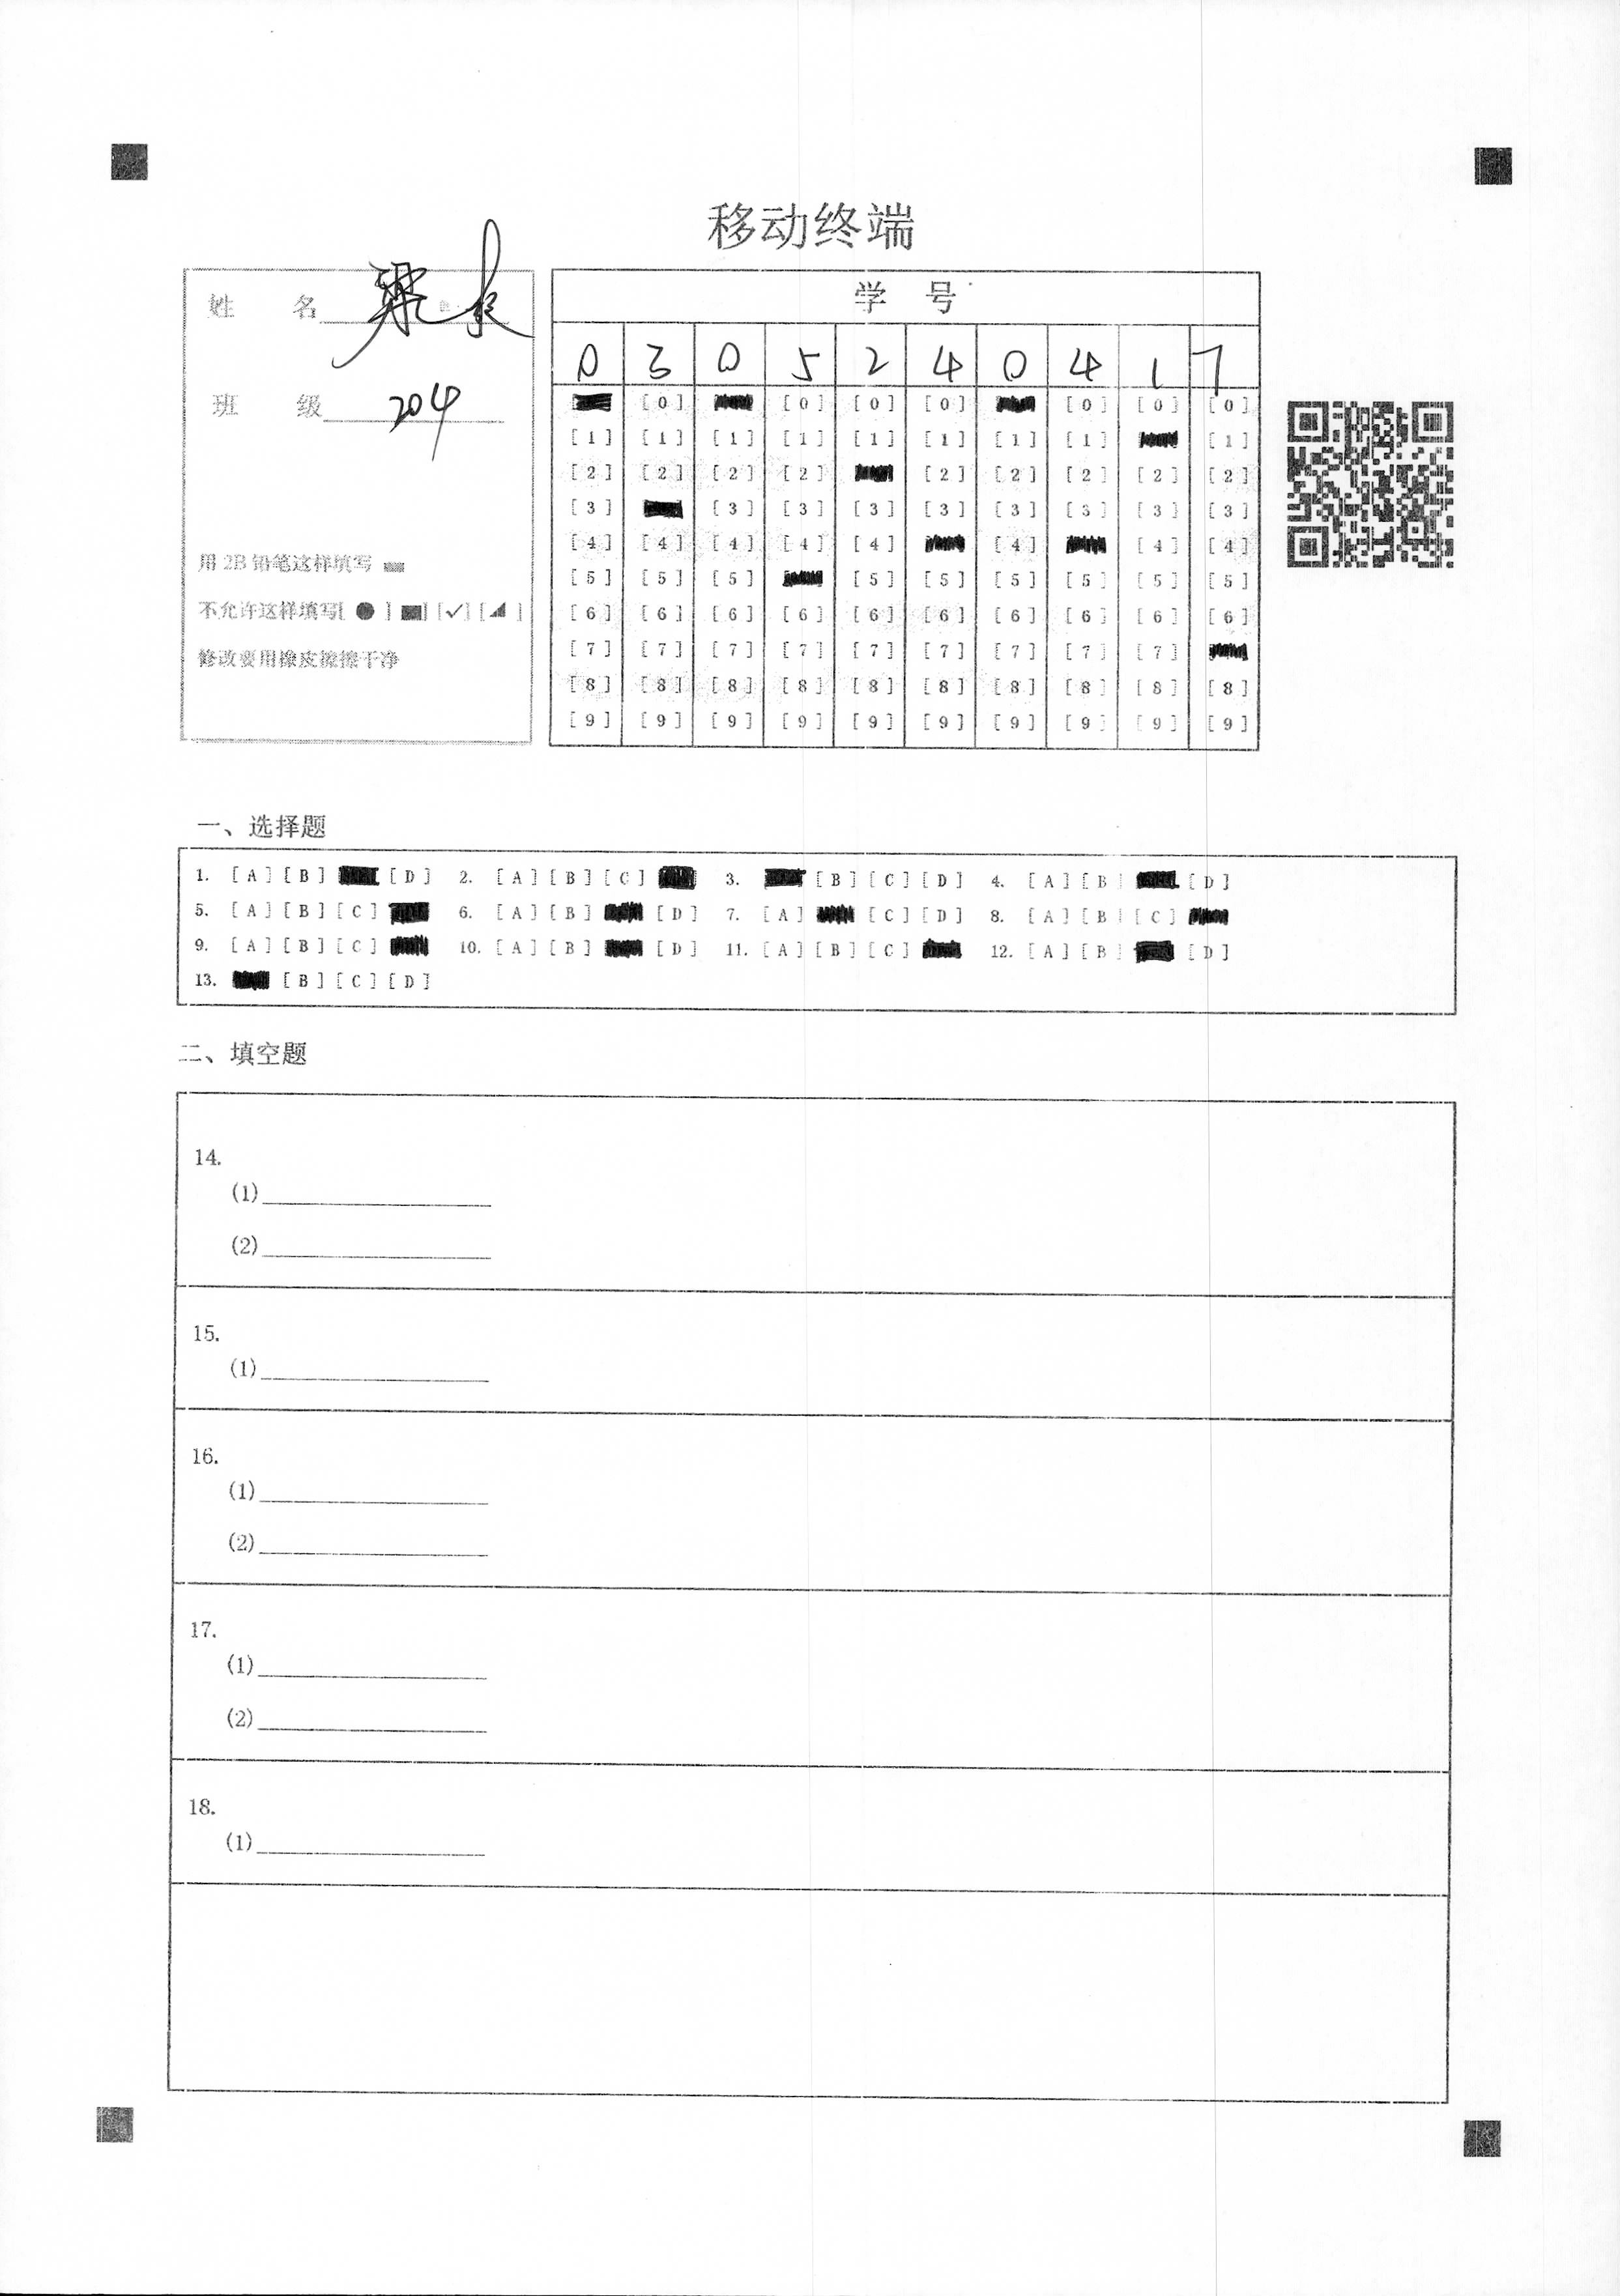 移动终端
姓 名
班 级 204
用 2B 铅笔这样填写
不允许这样填写[ ● ] ■] [✓] [◢ ]
修改要用橡皮擦擦干净
学 号
0 3 0 5 2 4 0 4 1 7
[0] [0] [0] [0] [0] [0] [0]
[1] [1] [1] [1] [1] [1] [1] [1] [1]
[2] [2] [2] [2] [2] [2] [2] [2] [2]
[3] [3] [3] [3] [3] [3] [3] [3] [3]
[4] [4] [4] [4] [4] [4] [4] [4]
[5] [5] [5] [5] [5] [5] [5] [5] [5]
[6] [6] [6] [6] [6] [6] [6] [6] [6] [6]
[7] [7] [7] [7] [7] [7] [7] [7] [7]
[8] [8] [8] [8] [8] [8] [8] [8] [8] [8]
[9] [9] [9] [9] [9] [9] [9] [9] [9] [9]
一、选择题
1. [A] [B] [D] 2. [A] [B] [C] 3. [B] [C] [D] 4. [A] [B] [D]
5. [A] [B] [C] 6. [A] [B] [D] 7. [A] [C] [D] 8. [A] [B] [C]
9. [A] [B] [C] 10. [A] [B] [D] 11. [A] [B] [C] 12. [A] [B] [D]
13. [B] [C] [D]
二、填空题
14.
(1)
(2)
15.
(1)
16.
(1)
(2)
17.
(1)
(2)
18.
(1)